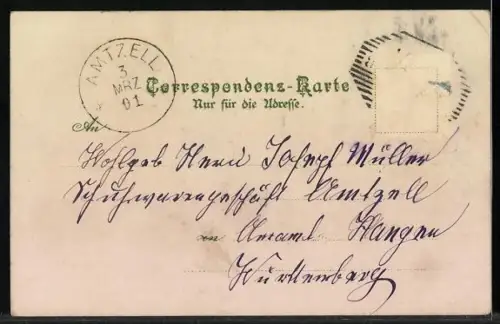 AMTZELL
3
MRZ
01
Correspondenz-Karte
Nur für die Adresse.
An
Wohlgeb Herrn Joseph Müller
Schuhwarengeschäft Amtzell
Oberamt Wangen
Württemberg